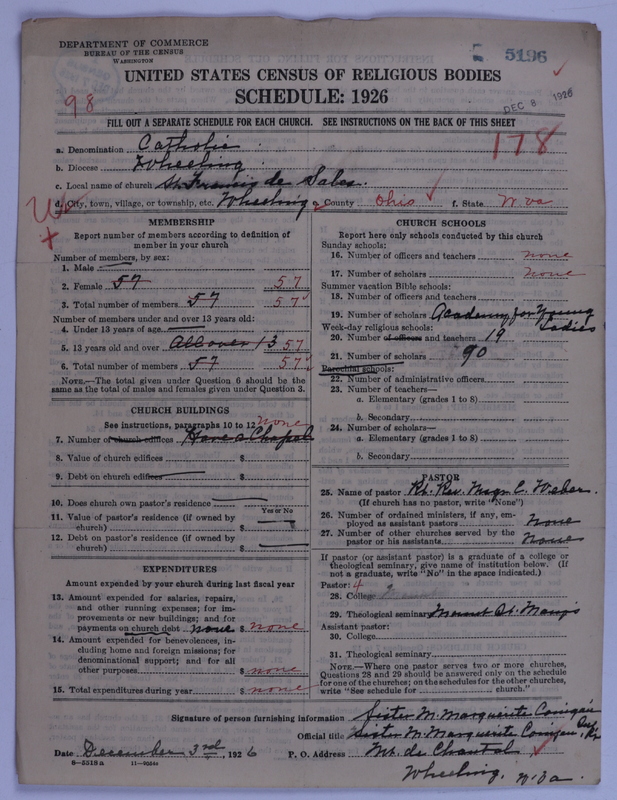 DEPARTMENT OF COMMERCE
BUREAU OF THE CENSUS
WASHINGTON
5196
DEC 8 1926
98
UNITED STATES CENSUS OF RELIGIOUS BODIES
SCHEDULE: 1926
FILL OUT A SEPARATE SCHEDULE FOR EACH CHURCH. SEE INSTRUCTIONS ON THE BACK OF THIS SHEET
178
a. Denomination Catholic
b. Diocese Wheeling
c. Local name of church St. Francis de Sales.
d. City, town, village, or township, etc. Wheeling e. County Ohio f. State W va
MEMBERSHIP
Report number of members according to definition of member in your church
Number of members, by sex:
1. Male
2. Female 57 57
3. Total number of members 57 57
Number of members under and over 13 years old:
4. Under 13 years of age
5. 13 years old and over All over 13 57
6. Total number of members 57 57
NOTE.—The total given under Question 6 should be the same as the total of males and females given under Question 3.
CHURCH BUILDINGS
See instructions, paragraphs 10 to 12 none
7. Number of church edifices Have a Chapel
8. Value of church edifices $
9. Debt on church edifices $
10. Does church own pastor's residence
Yes or No
11. Value of pastor's residence (if owned by church) $
12. Debt on pastor's residence (if owned by church) $
EXPENDITURES
Amount expended by your church during last fiscal year
13. Amount expended for salaries, repairs, and other running expenses; for improvements or new buildings; and for payments on church debt none $ none
14. Amount expended for benevolences, including home and foreign missions; for denominational support; and for all other purposes $ none
15. Total expenditures during year $ none
CHURCH SCHOOLS
Report here only schools conducted by this church
Sunday schools:
16. Number of officers and teachers none
17. Number of scholars none
Summer vacation Bible schools:
18. Number of officers and teachers
19. Number of scholars Academy for Young Ladies
Week-day religious schools:
20. Number of officers and teachers 19
21. Number of scholars 90
Parochial schools:
22. Number of administrative officers
23. Number of teachers—
a. Elementary (grades 1 to 8)
b. Secondary
24. Number of scholars—
a. Elementary (grades 1 to 8)
b. Secondary
PASTOR
25. Name of pastor Rt. Rev. Msgr. C. Weber.
(If church has no pastor, write "None")
26. Number of ordained ministers, if any, employed as assistant pastors none
27. Number of other churches served by the pastor or his assistants none
If pastor (or assistant pastor) is a graduate of a college or theological seminary, give name of institution below. (If not a graduate, write "No" in the space indicated.)
Pastor: 4
28. College
29. Theological seminary Mount St. Mary's
Assistant pastor:
30. College
31. Theological seminary
NOTE.—Where one pastor serves two or more churches, Questions 28 and 29 should be answered only on the schedule for one of the churches; on the schedules for the other churches, write "See schedule for church."
Signature of person furnishing information Sister M. Marguerite
Official title Sister M. Marguerite
Date December 3rd, 1926 P. O. Address Mt. de Chantal
8-5518 a
Wheeling, W. Va.